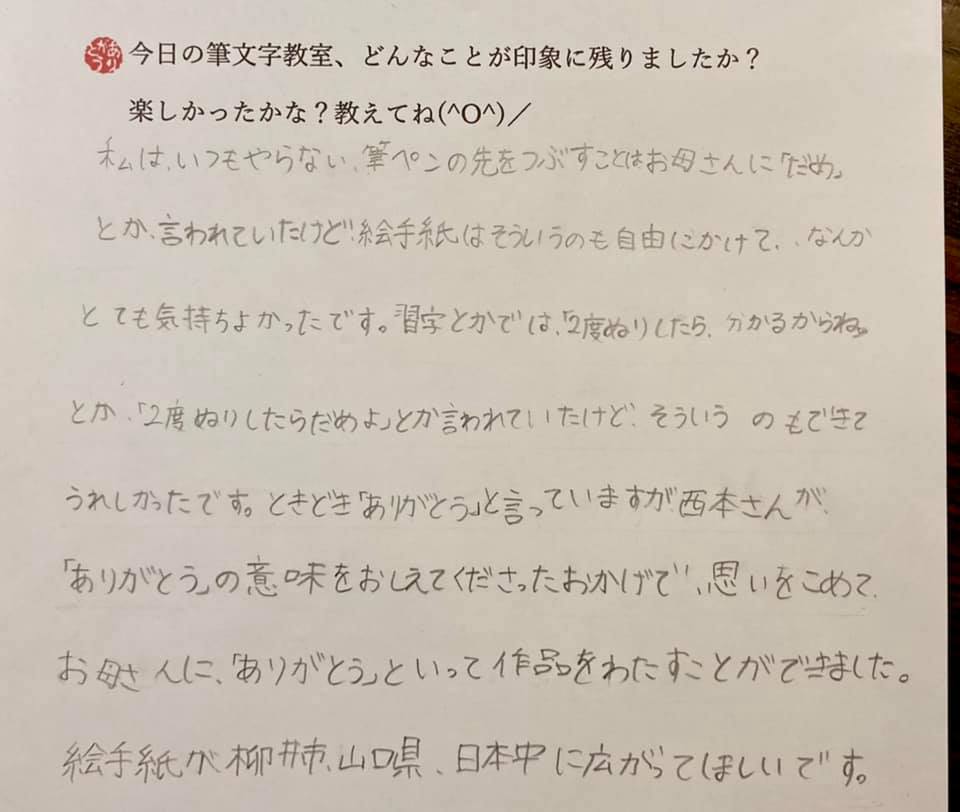 ありがとう
今日の筆文字教室、どんなことが印象に残りましたか？
楽しかったかな？教えてね(^O^)／
私は、いつもやらない、筆ペンの先をつぶすことはお母さんに「だめ」
とか、言われていたけど、絵手紙はそういうのも自由にかけて、、なんか
とても気持ちよかったです。習字とかでは、「2度ぬりしたら、分かるからね」
とか、「2度ぬりしたらだめよ」とか言われていたけど、そういうのもできて
うれしかったです。ときどき「ありがとう」と言っていますが、西本さんが、
「ありがとう」の意味をおしえてくださったおかげで、思いをこめて、
お母さんに、「ありがとう」といって作品をわたすことができました。
絵手紙が、柳井市、山口県、日本中に広がってほしいです。